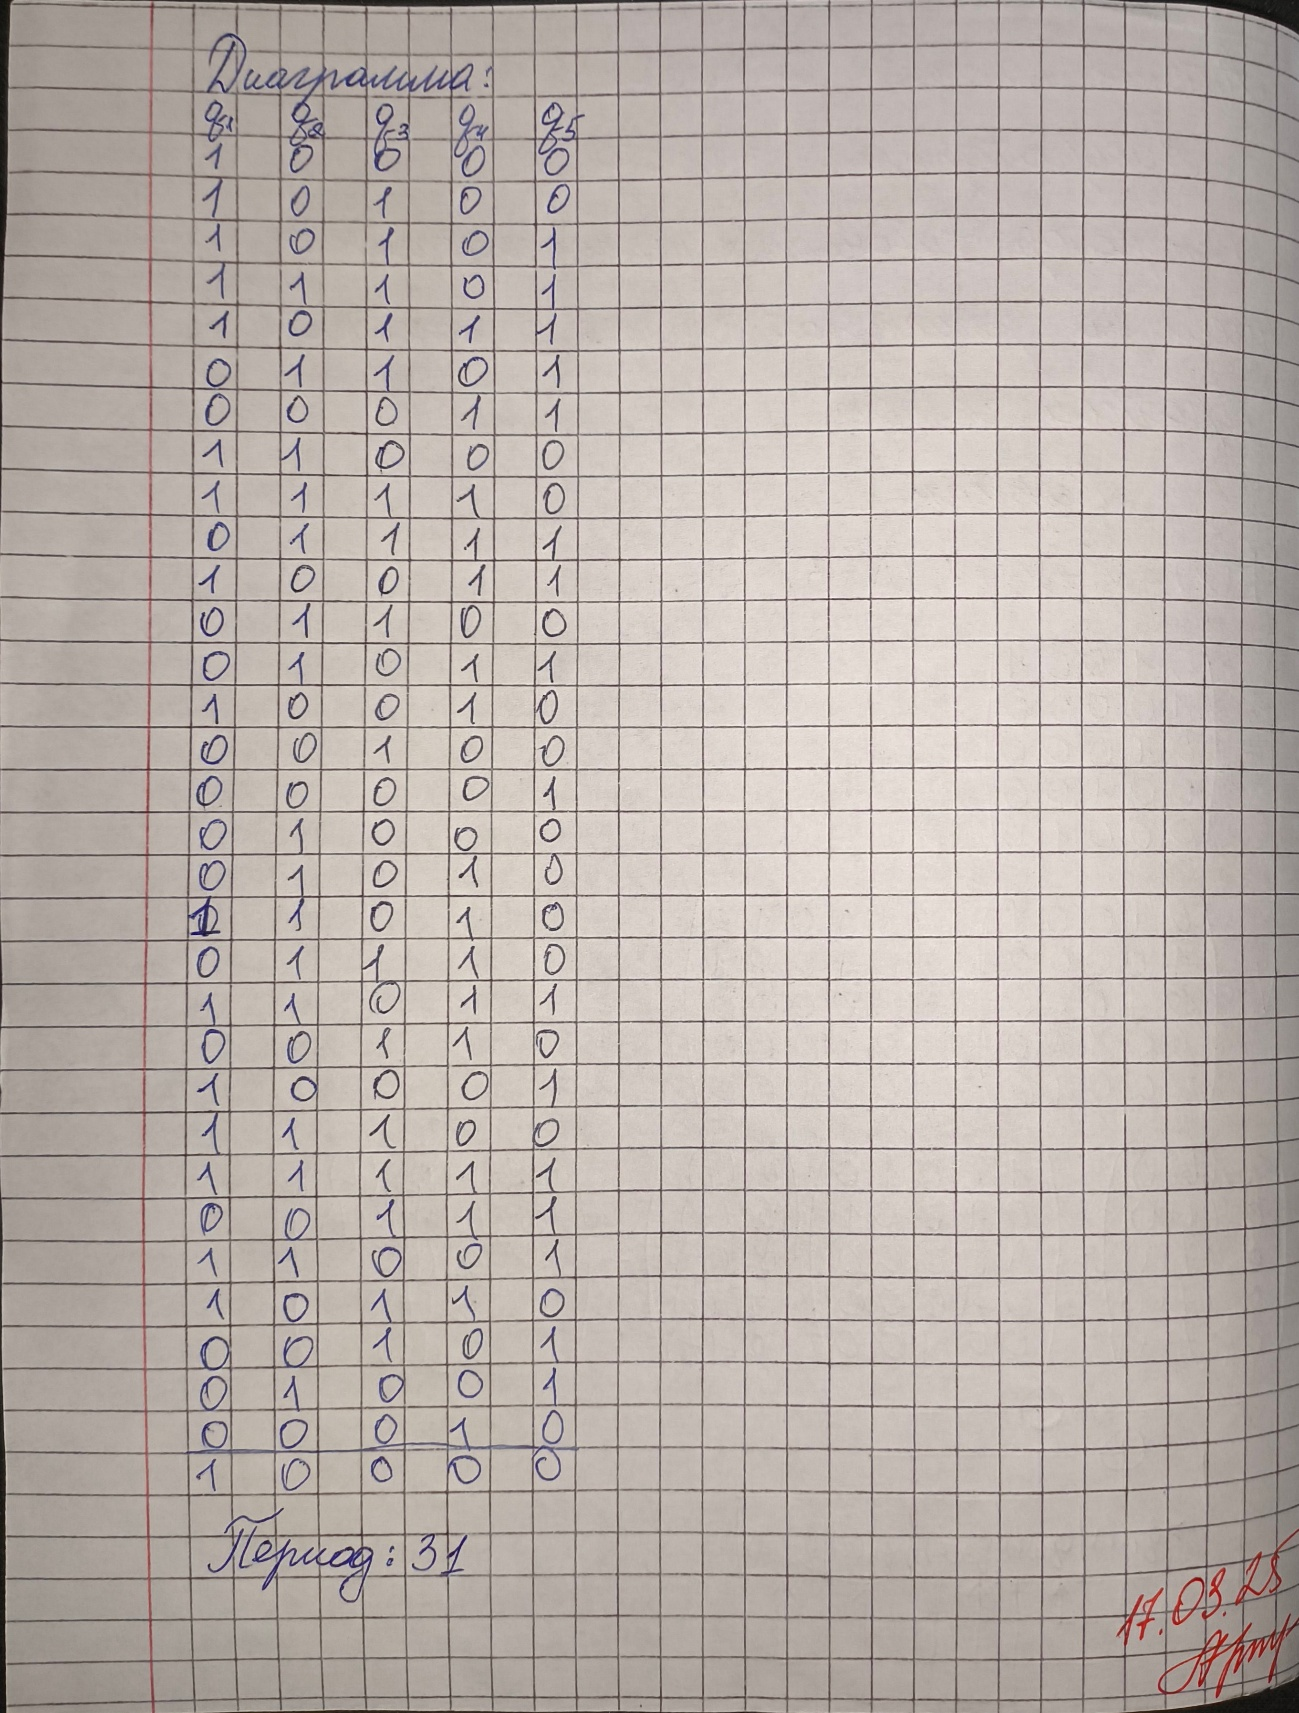 Диаграмма:
q1 q2 q3 q4 q5
1 0 0 0 0
1 0 1 0 0
1 0 1 0 1
1 1 1 0 1
1 0 1 1 1
0 1 1 0 1
0 0 0 1 1
1 1 0 0 0
1 1 1 1 0
0 1 1 1 1
1 0 0 1 1
0 1 1 0 0
0 1 0 1 1
1 0 0 1 0
0 0 1 0 0
0 0 0 0 1
0 1 0 0 0
0 1 0 1 0
1 1 0 1 0
0 1 1 1 0
1 1 0 1 1
0 0 1 1 0
1 0 0 0 1
1 1 1 0 0
1 1 1 1 1
0 0 1 1 1
1 1 0 0 1
1 0 1 1 0
0 0 1 0 1
0 1 0 0 1
0 0 0 1 0
1 0 0 0 0
Период: 31
17.03.25